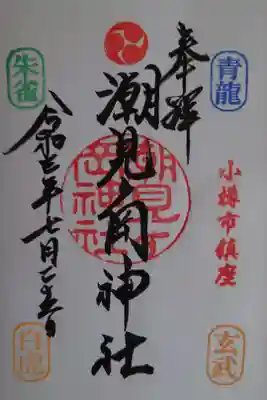 奉拝
青龍
小樽市鎮座
玄武
潮見ヶ岡神社
潮見ヶ
岡神社
朱雀
令和 年七月 日
白虎